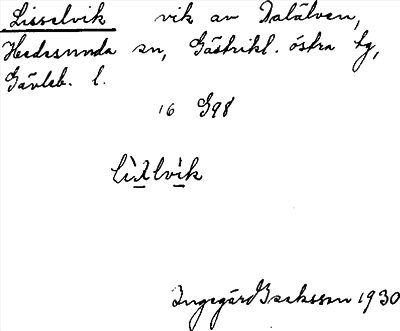 Lisselvik vik av Dalälven,
Hedesunda sn, Gästrikl. östra tg,
Gävleb. l.
16 G98
Ingegärd Isaksson 1930